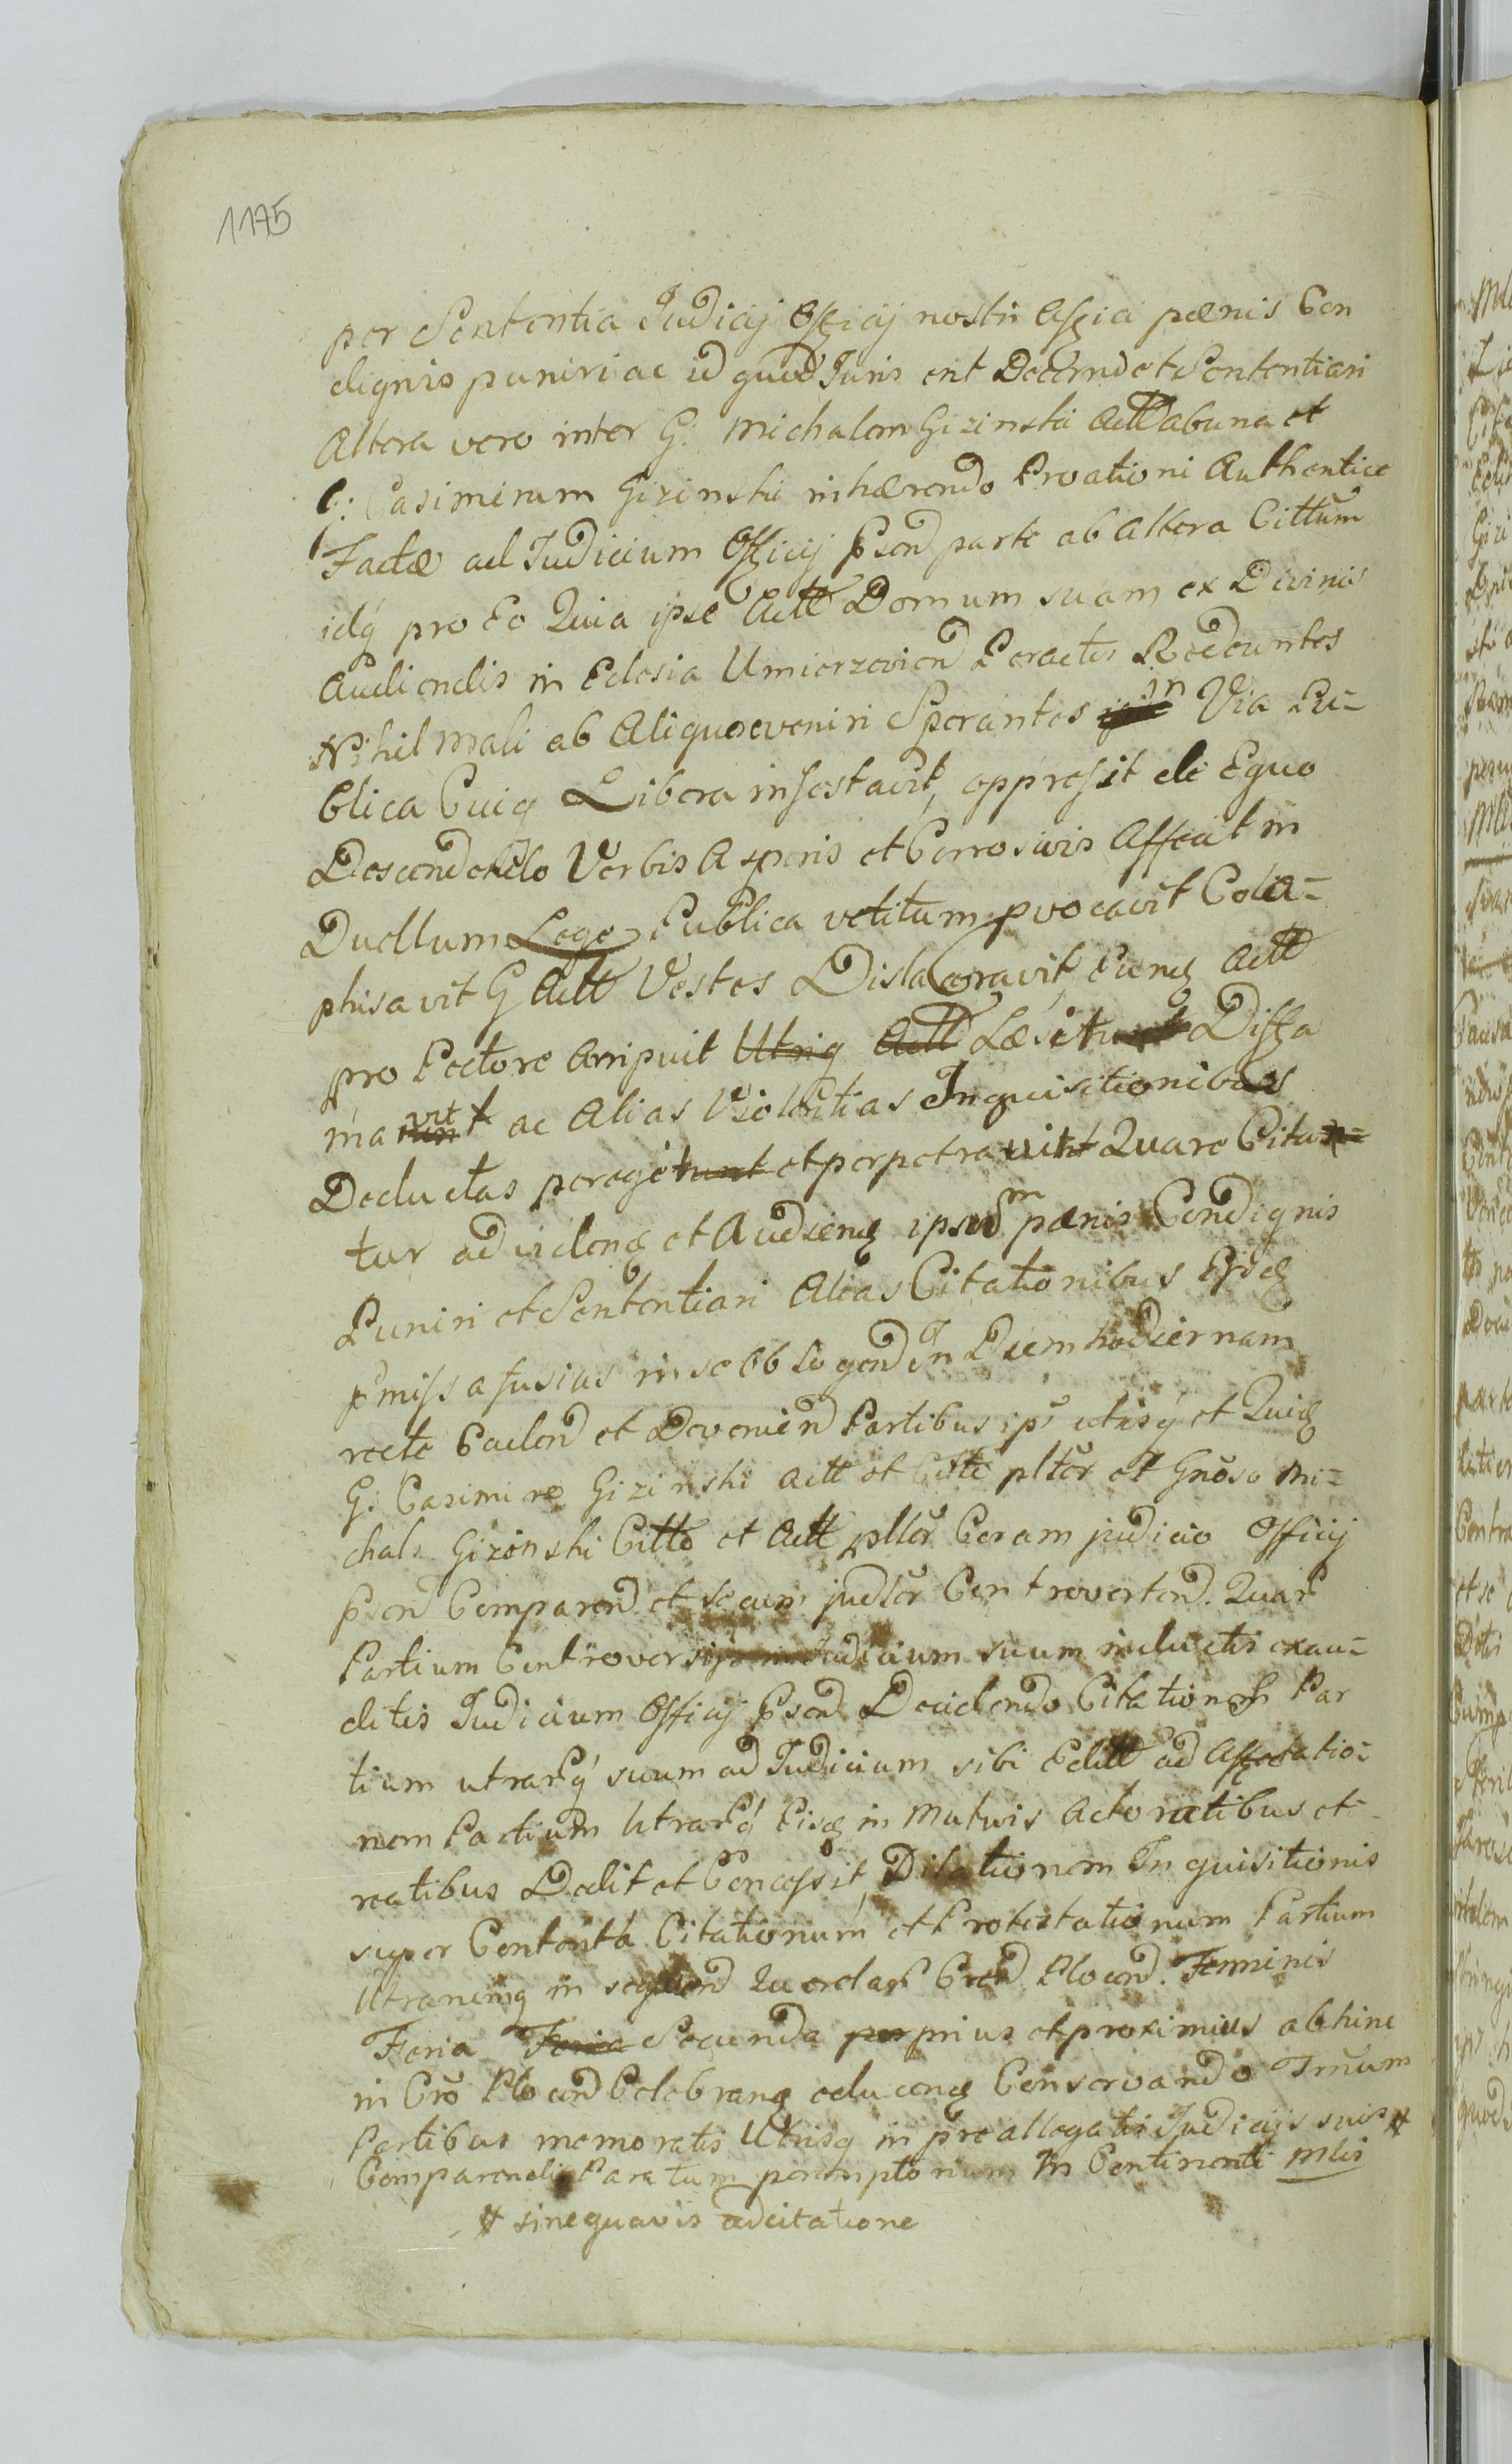 1175
per Sententia Judicij Officij nostri Affici pænis Con
dignis puniri ac id quod Juris erit Decernd et Sententiari
Altera vero inter G: Michalem Gizinski Actt ab una et
G: Casimirum Gizinski inhærendo Proationi Authentice
Factæ ad Judicium Officij Psend parte ab altera Cittum
idq pro Eo Quia ipse Actt Domum suam ex Divinis
Audiendis in Eclesia Umierzoviend Peractis Redeuntes
Nihil Mali ab Aliquo eveniri Sperantes in Via Pu-
blica Cuiq Libera infestavit, oppressit de Equo
Descendendo Verbis Asperis et Corrosivis Affecit in
Duellum Lege Publica vetitum pvocavit Cola-
phisavit G Actt Vestes Dislaceravit Eunq Actt
pro Pectore Arripuit Utriq Actt Læsit Diffa
mavit ac Alias Violentias Inquisitionibus
Deductas peregit et perpetravit Quare Cita-
tur ad videnq et Audienq ipsum pænis Condignis
Puniri et Sententiari Alias Citationibus Eisd
pmissa fusius in se Obloquend In Diem hodiernam
recte Cadend et Devenien Partibus ips utrisq et Quid
G: Casimiro Gizinski Actt et Citte plter et Gnoso Mi-
chale Gizinski Citto et Actt plter Coram judicio Officij
Psend Comparend et secum judler Controvertend. Quar
Partium Controversijs in Judicium suum inductis exau-
ditis Judicium Officij Psend Decidendo Citationes Par
tium utrarq suum ad Judicium sibi Editt ad Affectatio-
nem Partium Utrarq Eisq in Mutuis Actoratibus et
reatibus Dedit et Concessit Dilationem Inquisitionis
super Contenta Citationum et Protestationum Partium
Utranemq in seqttend Querelar Cren Plocen. Terminis
Feria Feria Secunda per prius et proximius abhinc
in Cro Plocend Celebranq educenq Conservando Trnum
Partibus memoratis Utrisq in preallegatis Judicijs suis #
Comparendi Paratum peremptorium In Continenti Mlis
# sine quavis adcitatione